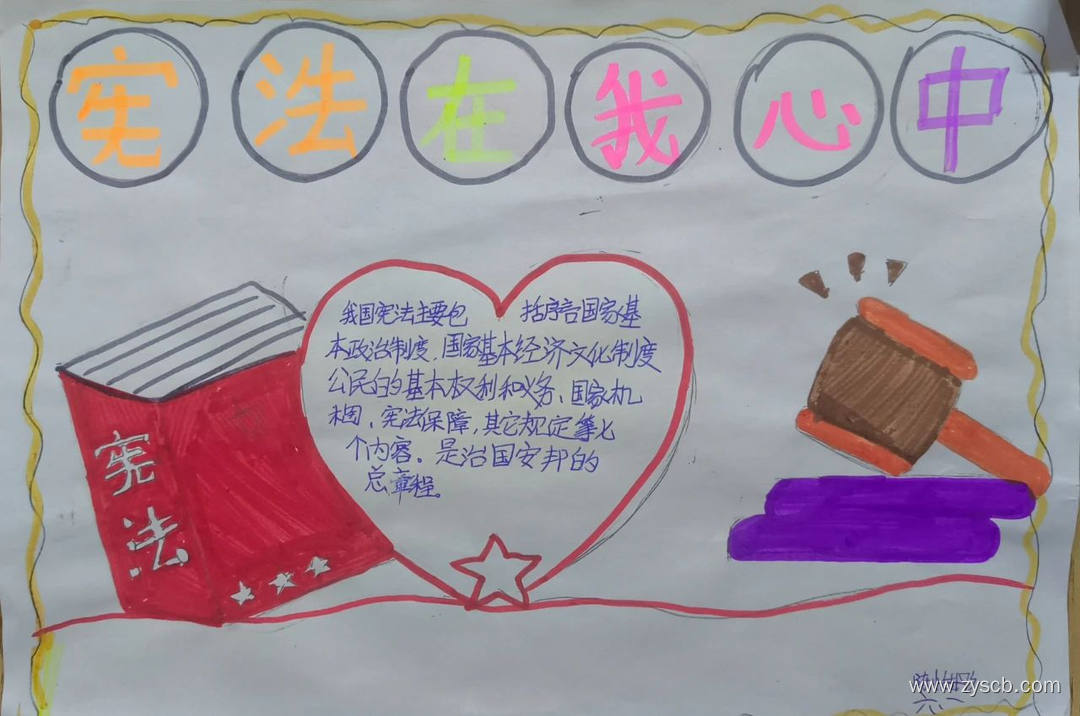 宪法在我心中
我国宪法主要包 括序言国家基
本政治制度,国家基本经济文化制度
公民的基本权利和义务、国家机
构、宪法保障,其它规定等七
个内容。是治国安邦的
总章程。
宪法
六二
www.zyscb.com